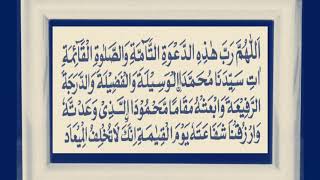 اَللّٰهُمَّ رَبَّ هٰذِهِ الدَّعْوَةِ التَّآمَّةِ وَالصَّلٰوةِ الْقَآئِمَةِ
اٰتِ سَيِّدَنَا مُحَمَّدَا ۨالْوَسِيْلَةَ وَالْفَضِيْلَةَ وَالدَّرَجَةَ
الرَّفِيْعَةَ وَابْعَثْهُ مَقَامًا مَّحْمُوْدَا ۨالَّذِىْ وَعَدْتَّهٗ
وَارْزُقْنَا شَفَاعَتَهٗ يَوْمَ الْقِيٰمَةِ اِنَّكَ لَا تُخْلِفُ الْمِيْعَادَ